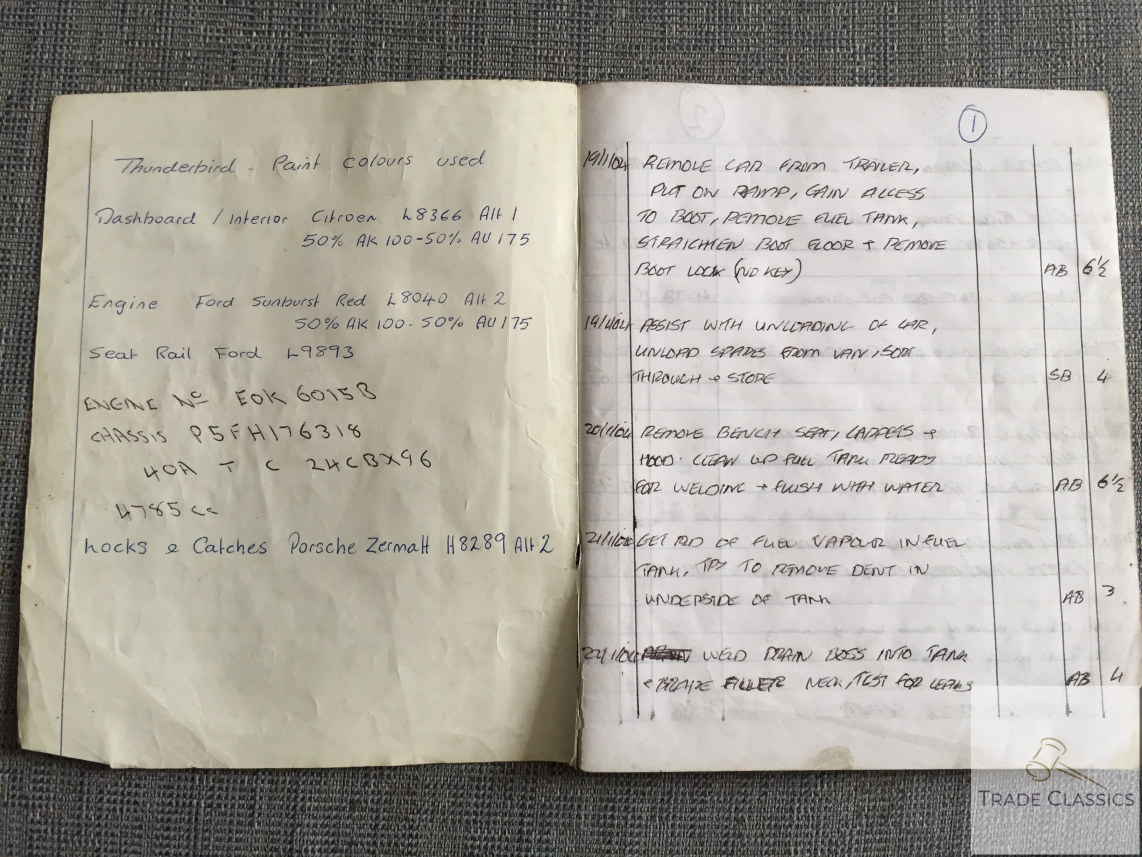 Thunderbird - Paint colours used
Dashboard / Interior Citroen L8366 Alt 1
50% AK 100-50% AU 175
Engine Ford Sunburst Red L8040 Alt 2
50% AK 100-50% AU 175
Seat Rail Ford L9893
ENGINE No EOK 6015B
CHASSIS P5FH176318
40A T C 24CBX96
4785 cc
Locks & Catches Porsche Zermatt H8289 Alt 2
1
19/1/04 REMOVE CAR FROM TRAILER,
PUT ON RAMP, GAIN ACCESS
TO BOOT, REMOVE FUEL TANK,
STRAIGHTEN BOOT FLOOR + REMOVE
BOOT LOCK (NO KEY) AB 6½
19/1/04 ASSIST WITH UNLOADING OF CAR,
UNLOAD SPARES FROM VAN, SORT
THROUGH + STORE SB 4
20/1/04 REMOVE BENCH SEAT, CARPETS +
HOOD. CLEAN UP FUEL TANK READY
FOR WELDING + FLUSH WITH WATER AB 6½
21/1/04 GET RID OF FUEL VAPOUR IN FUEL
TANK, TRY TO REMOVE DENT IN
UNDERSIDE OF TANK AB 3
22/1/04 WELD DRAIN BOSS INTO TANK
+ BRAZE FILLER NECK, TEST FOR LEAKS AB 4
TRADE CLASSICS